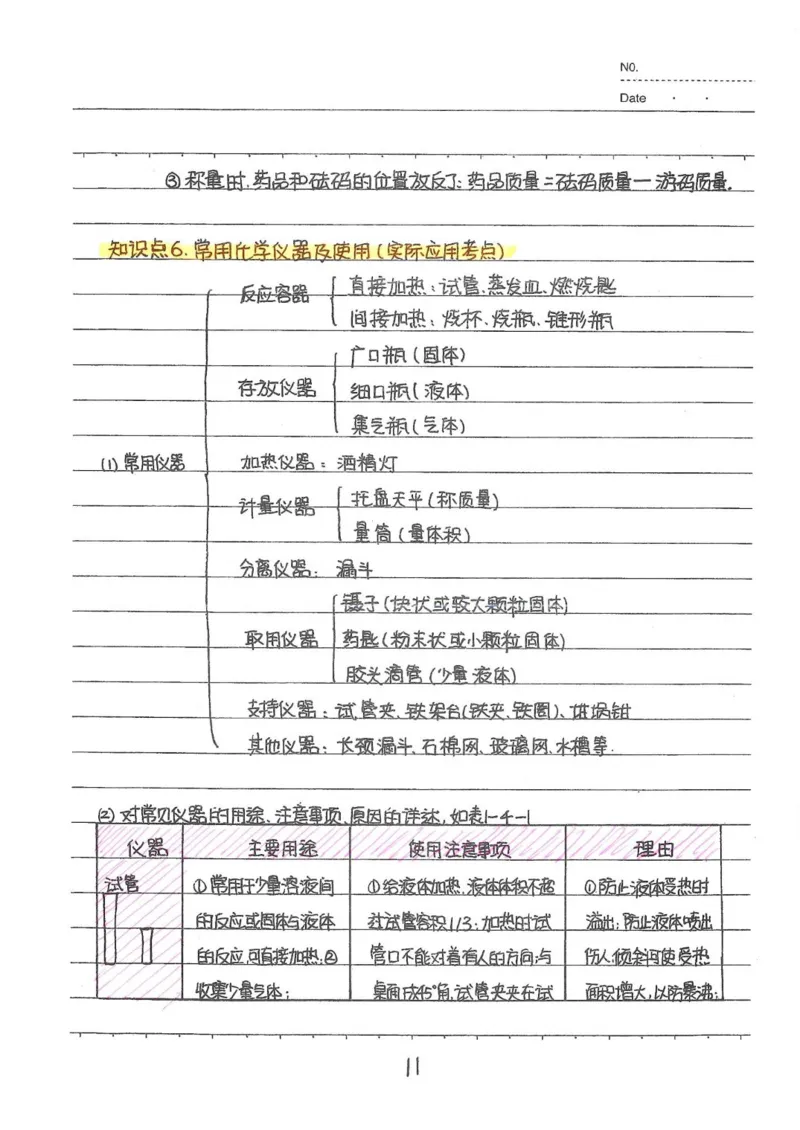 NO.
Date
③称量时,药品和砝码的位置放反了:药品质量=砝码质量一游码质量.
知识点6.常用化学仪器及使用(实际应用考点)
(1)常用仪器
反应容器
直接加热:试管、蒸发皿、燃烧匙
间接加热:烧杯、烧瓶、锥形瓶
存放仪器
广口瓶(固体)
细口瓶(液体)
集气瓶(气体)
加热仪器:酒精灯
计量仪器
托盘天平(称质量)
量筒(量体积)
分离仪器:漏斗
取用仪器
镊子(块状或较大颗粒固体)
药匙(粉末状或小颗粒固体)
胶头滴管(少量液体)
支持仪器:试管夹、铁架台(铁夹、铁圈)、坩埚钳
其他仪器:长颈漏斗、石棉网、玻璃网、水槽等.
(2)对常见仪器的用途、注意事项、原因的详述,如表1-4-1
仪器 主要用途 使用注意事项 理由
试管 ①常用于少量溶液间 ①给液体加热,液体体积不超 ①防止液体受热时
的反应或固体与液体 过试管容积1/3;加热时试 溢出;防止液体喷出
的反应,可直接加热;② 管口不能对着有人的方向;与 伤人;倾斜可使受热
收集少量气体; 桌面成45°角,试管夹夹在试 面积增大,以防暴沸;
11